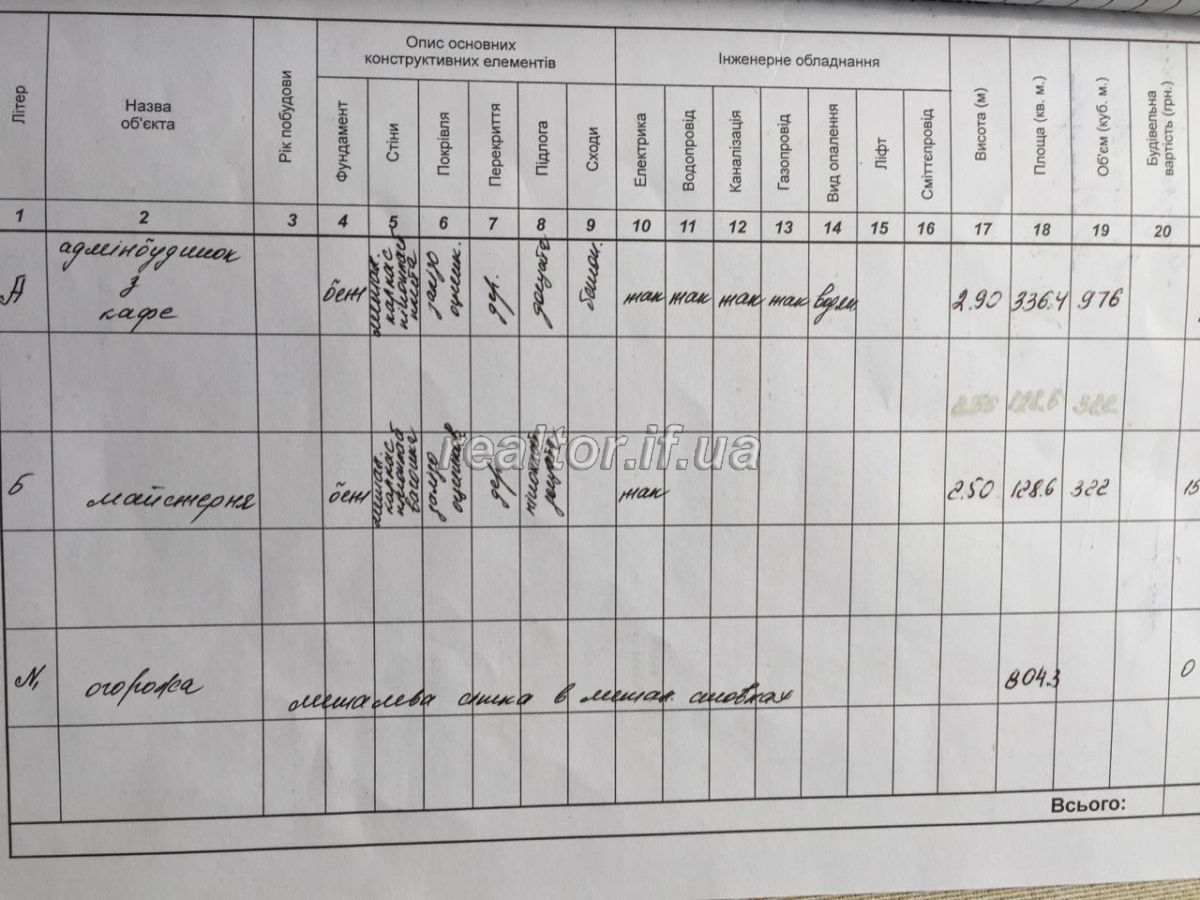 Літер
Назва
об'єкта
Рік побудови
Опис основних
конструктивних елементів
Інженерне обладнання
Фундамент
Стіни
Покрівля
Перекриття
Підлога
Сходи
Електрика
Водопровід
Каналізація
Газопровід
Вид опалення
Ліфт
Сміттєпровід
Висота (м)
Площа (кв. м.)
Об'єм (куб. м.)
Будівельна
вартість (грн.)
1 2 3 4 5 6 7 8 9 10 11 12 13 14 15 16 17 18 19 20
А
адмінбудинок
з
кафе
бет
метал.
каркас
оцинк.
дер.
бетон.
так так так так водян
2.90 336.4 976
2.50 128.6 322
realtor.if.ua
Б
майстерня
бет
метал.
каркас
дер.
так
2.50 128.6 322
15
N₁
огорожа
металева сітка в метал. стовпах
804.3
0
Всього: